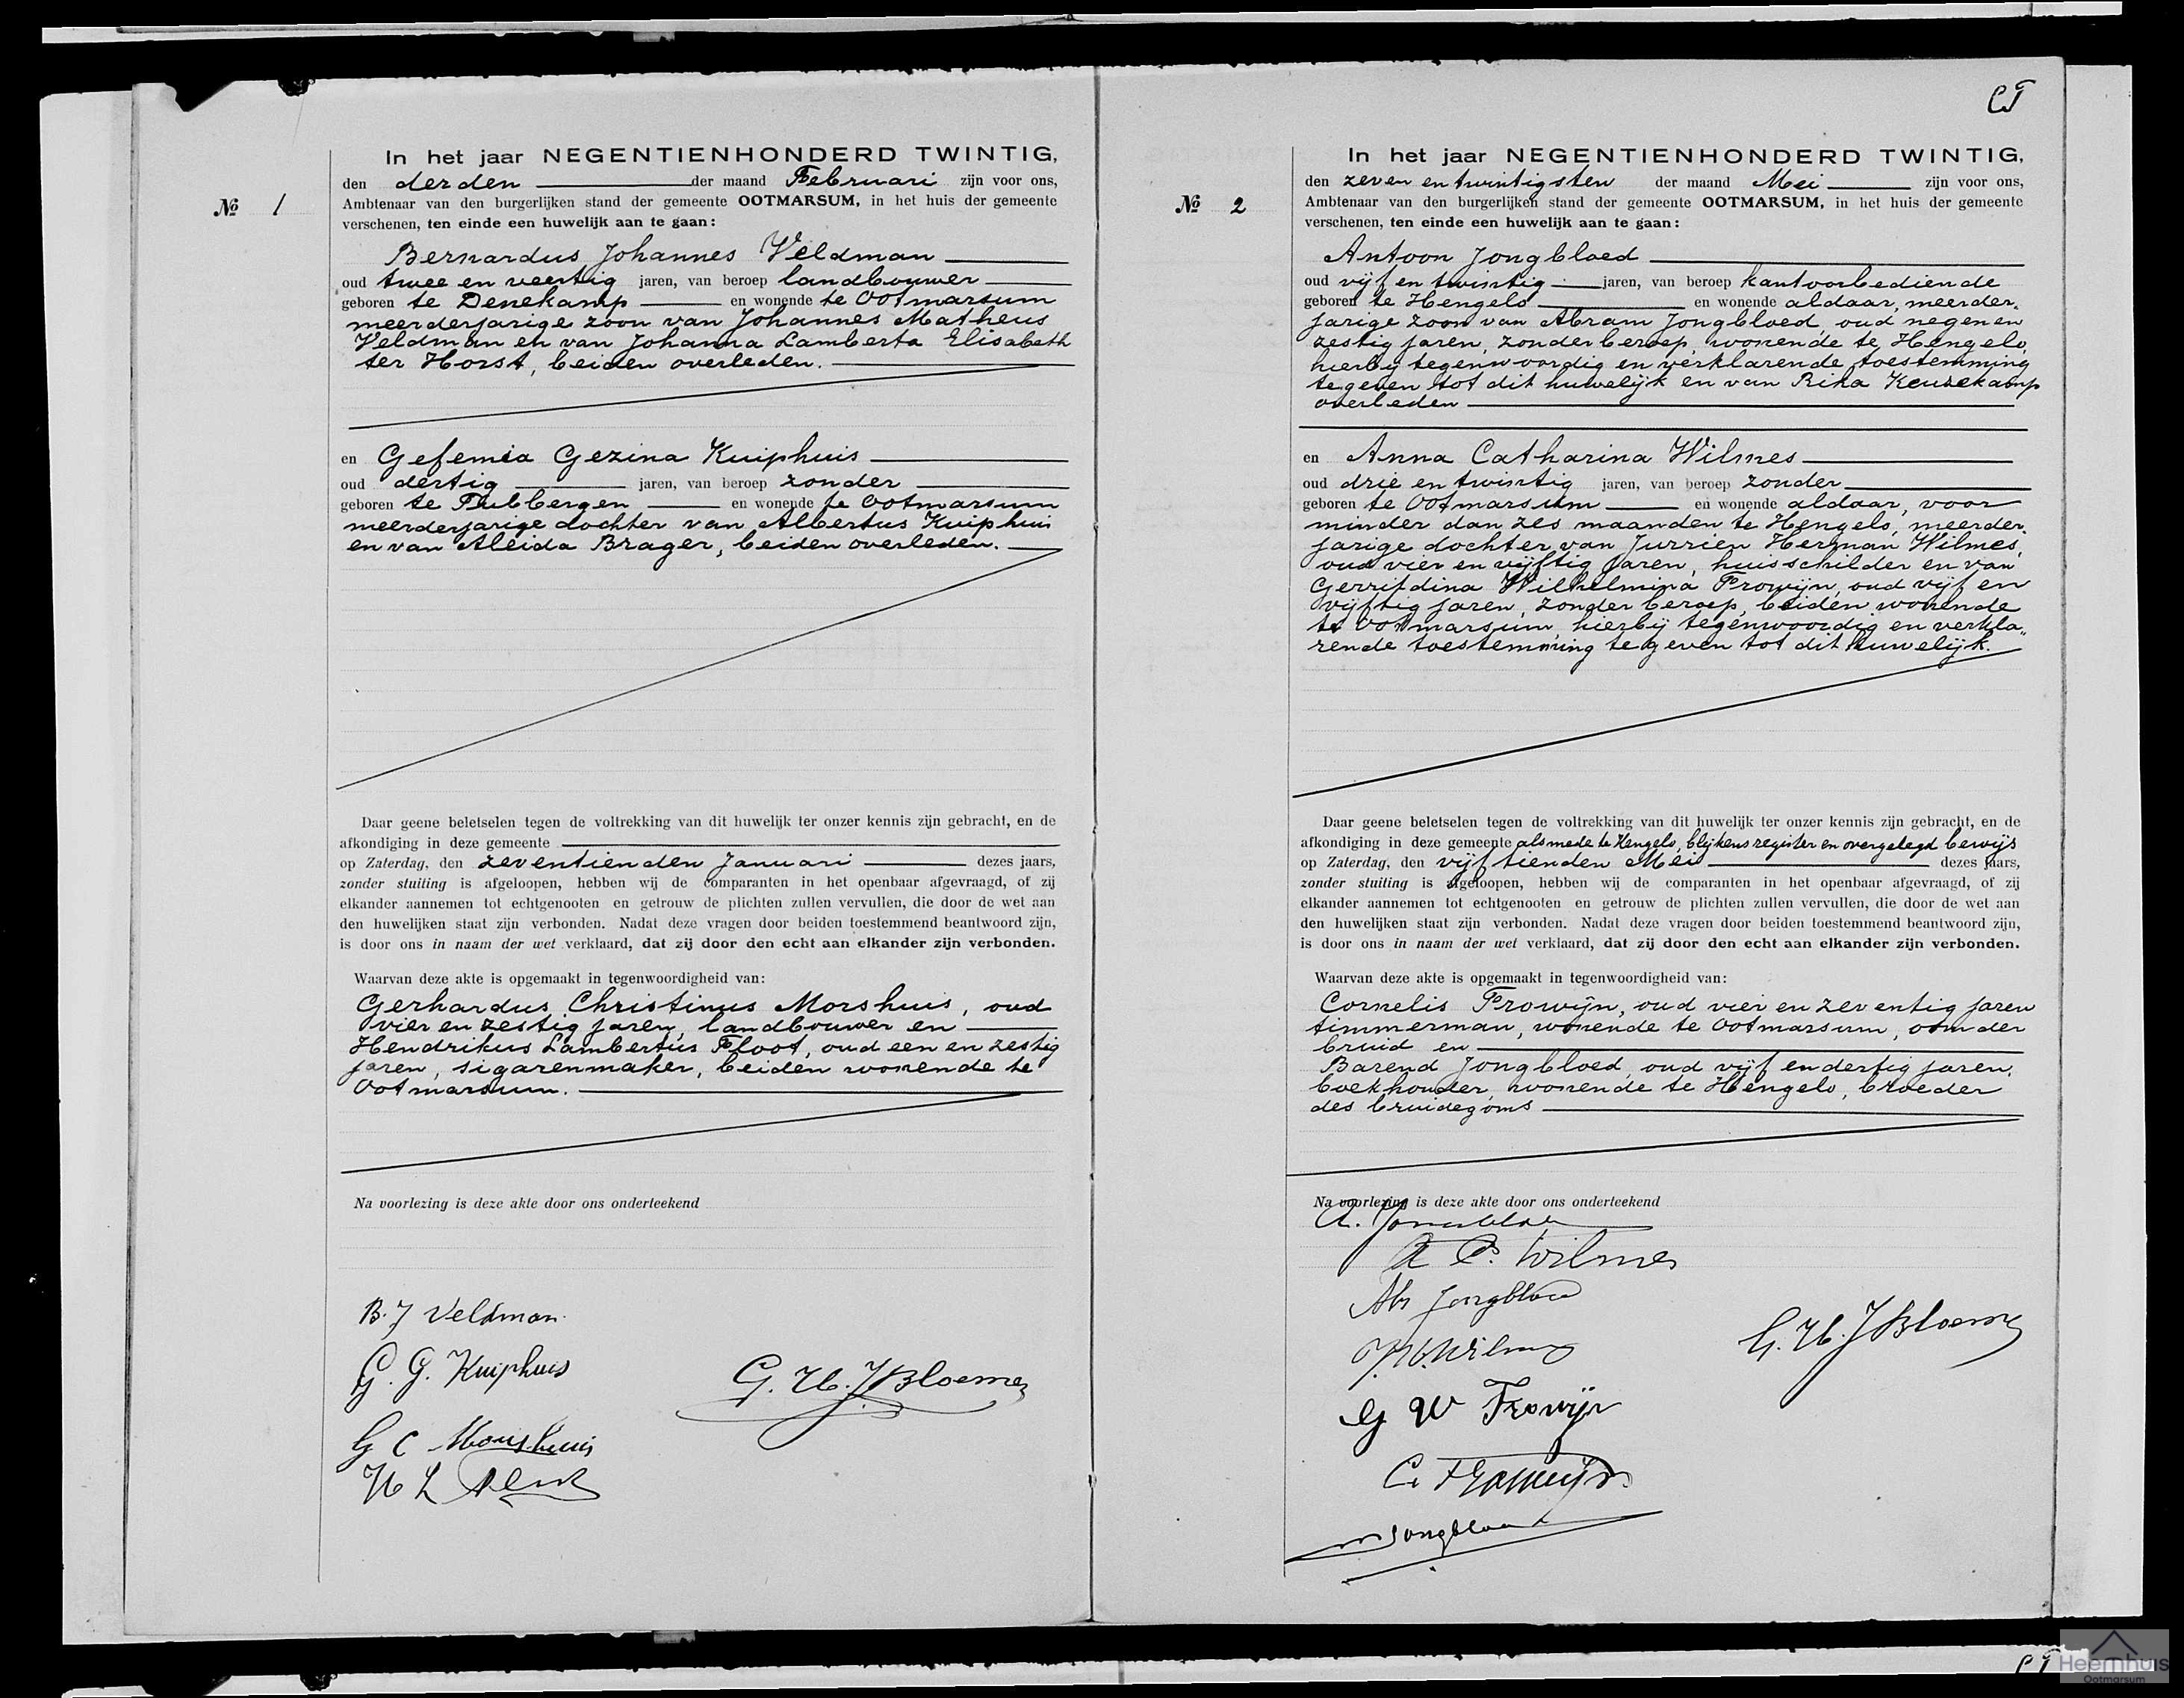 CT
In het jaar NEGENTIENHONDERD TWINTIG,
den derden der maand Februari zijn voor ons,
No 1
Ambtenaar van den burgerlijken stand der gemeente OOTMARSUM, in het huis der gemeente
verschenen, ten einde een huwelijk aan te gaan:
Bernardus Johannes Veldman
oud twee en veertig jaren, van beroep landbouwer
geboren te Denekamp en wonende te Ootmarsum
meerderjarige zoon van Johannes Matheus
Veldman en van Johanna Lamberta Elisabeth
ter Horst, beiden overleden.
en Gefemia Gezina Kuiphuis
oud dertig jaren, van beroep zonder
geboren te Tubbergen en wonende te Ootmarsum
meerderjarige dochter van Albertus Kuiphuis
en van Aleida Brager, beiden overleden.
Daar geene beletselen tegen de voltrekking van dit huwelijk ter onzer kennis zijn gebracht, en de
afkondiging in deze gemeente
op Zaterdag, den zeventienden Januari dezes jaars,
zonder stuiting is afgeloopen, hebben wij de comparanten in het openbaar afgevraagd, of zij
elkander aannemen tot echtgenooten en getrouw de plichten zullen vervullen, die door de wet aan
den huwelijken staat zijn verbonden. Nadat deze vragen door beiden toestemmend beantwoord zijn,
is door ons in naam der wet verklaard, dat zij door den echt aan elkander zijn verbonden.
Waarvan deze akte is opgemaakt in tegenwoordigheid van:
Gerhardus Christinus Morshuis, oud
vier en zestig jaren, landbouwer en
Hendrikus Lambertus Floot, oud een en zestig
jaren, sigarenmaker, beiden wonende te
Ootmarsum.
Na voorlezing is deze akte door ons onderteekend
B. J Veldman.
G. G. Kuiphuis
G. H. J Bloemen
G C Morshuis
H L
In het jaar NEGENTIENHONDERD TWINTIG,
den zeven en twintigsten der maand Mei zijn voor ons,
No 2
Ambtenaar van den burgerlijken stand der gemeente OOTMARSUM, in het huis der gemeente
verschenen, ten einde een huwelijk aan te gaan:
Antoon Jongbloed
oud vijf en twintig jaren, van beroep kantoorbediende
geboren te Hengelo en wonende aldaar, meerder„
jarige zoon van Abram Jongbloed, oud negen en
zestig jaren, zonder beroep, wonende te Hengelo,
hierbij tegenwoordig en verklarende toestemming
te geven tot dit huwelijk en van Rika Keuzekamp
overleden
en Anna Catharina Wilmes
oud drie en twintig jaren, van beroep zonder
geboren te Ootmarsum en wonende aldaar, voor
minder dan zes maanden te Hengelo, meerder„
jarige dochter van Jurrien Herman Wilmes,
oud vier en vijftig jaren, huisschilder en van
Gerritdina Wilhelmina Frowijn, oud vijf en
vijftig jaren, zonder beroep, beiden wonende
te Ootmarsum, hierbij tegenwoordig en verkla„
rende toestemming te geven tot dit huwelijk.
Daar geene beletselen tegen de voltrekking van dit huwelijk ter onzer kennis zijn gebracht, en de
afkondiging in deze gemeente alsmede te Hengelo, blijkens register en overgelegd bewijs
op Zaterdag, den vijftienden Mei dezes jaars,
zonder stuiting is afgeloopen, hebben wij de comparanten in het openbaar afgevraagd, of zij
elkander aannemen tot echtgenooten en getrouw de plichten zullen vervullen, die door de wet aan
den huwelijken staat zijn verbonden. Nadat deze vragen door beiden toestemmend beantwoord zijn,
is door ons in naam der wet verklaard, dat zij door den echt aan elkander zijn verbonden.
Waarvan deze akte is opgemaakt in tegenwoordigheid van:
Cornelis Frowijn, oud vier en zeventig jaren
timmerman, wonende te Ootmarsum, oom der
bruid en
Barend Jongbloed, oud vijf en dertig jaren,
boekhouder, wonende te Hengelo, broeder
des bruidegoms
Na voorlezing is deze akte door ons onderteekend
A. Jongbloed
A C. Wilmes
Abr Jongbloed
J. H. Wilmes
G. H. J Bloemen
G W Frowijn
C. Frowijn
Jongbloed
Heemhuis
Ootmarsum